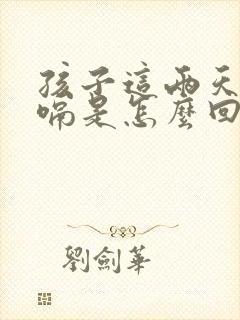 孩子這兩天
嗝是怎麼回
劉劍華